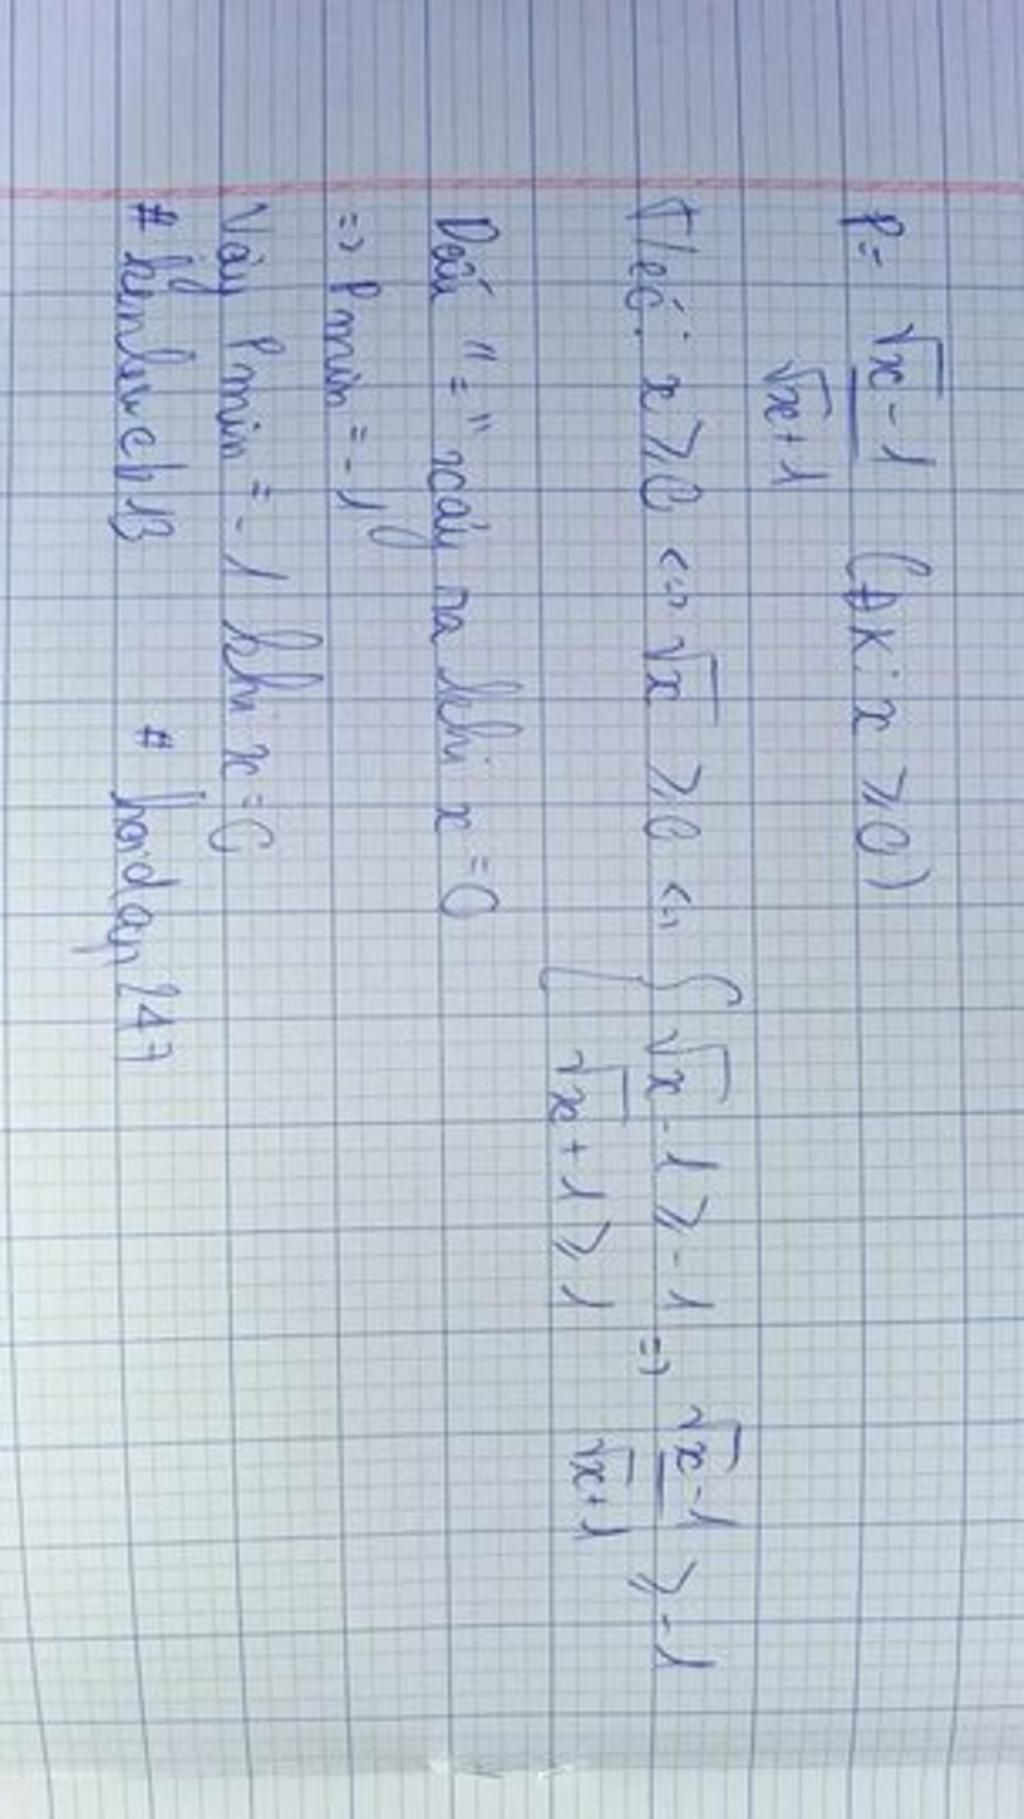 P = \frac{\sqrt{x}-1}{\sqrt{x}+1} (ĐK: x ≥ 0)
T/có: x ≥ 0 <=> \sqrt{x} ≥ 0 <=> { \sqrt{x} - 1 ≥ -1 ; \sqrt{x} + 1 ≥ 1 => \frac{\sqrt{x}-1}{\sqrt{x}+1} ≥ -1
Dấu "=" xảy ra khi x = 0
=> P min = -1
Vậy P min = -1 khi x = 0
# # hoidap247